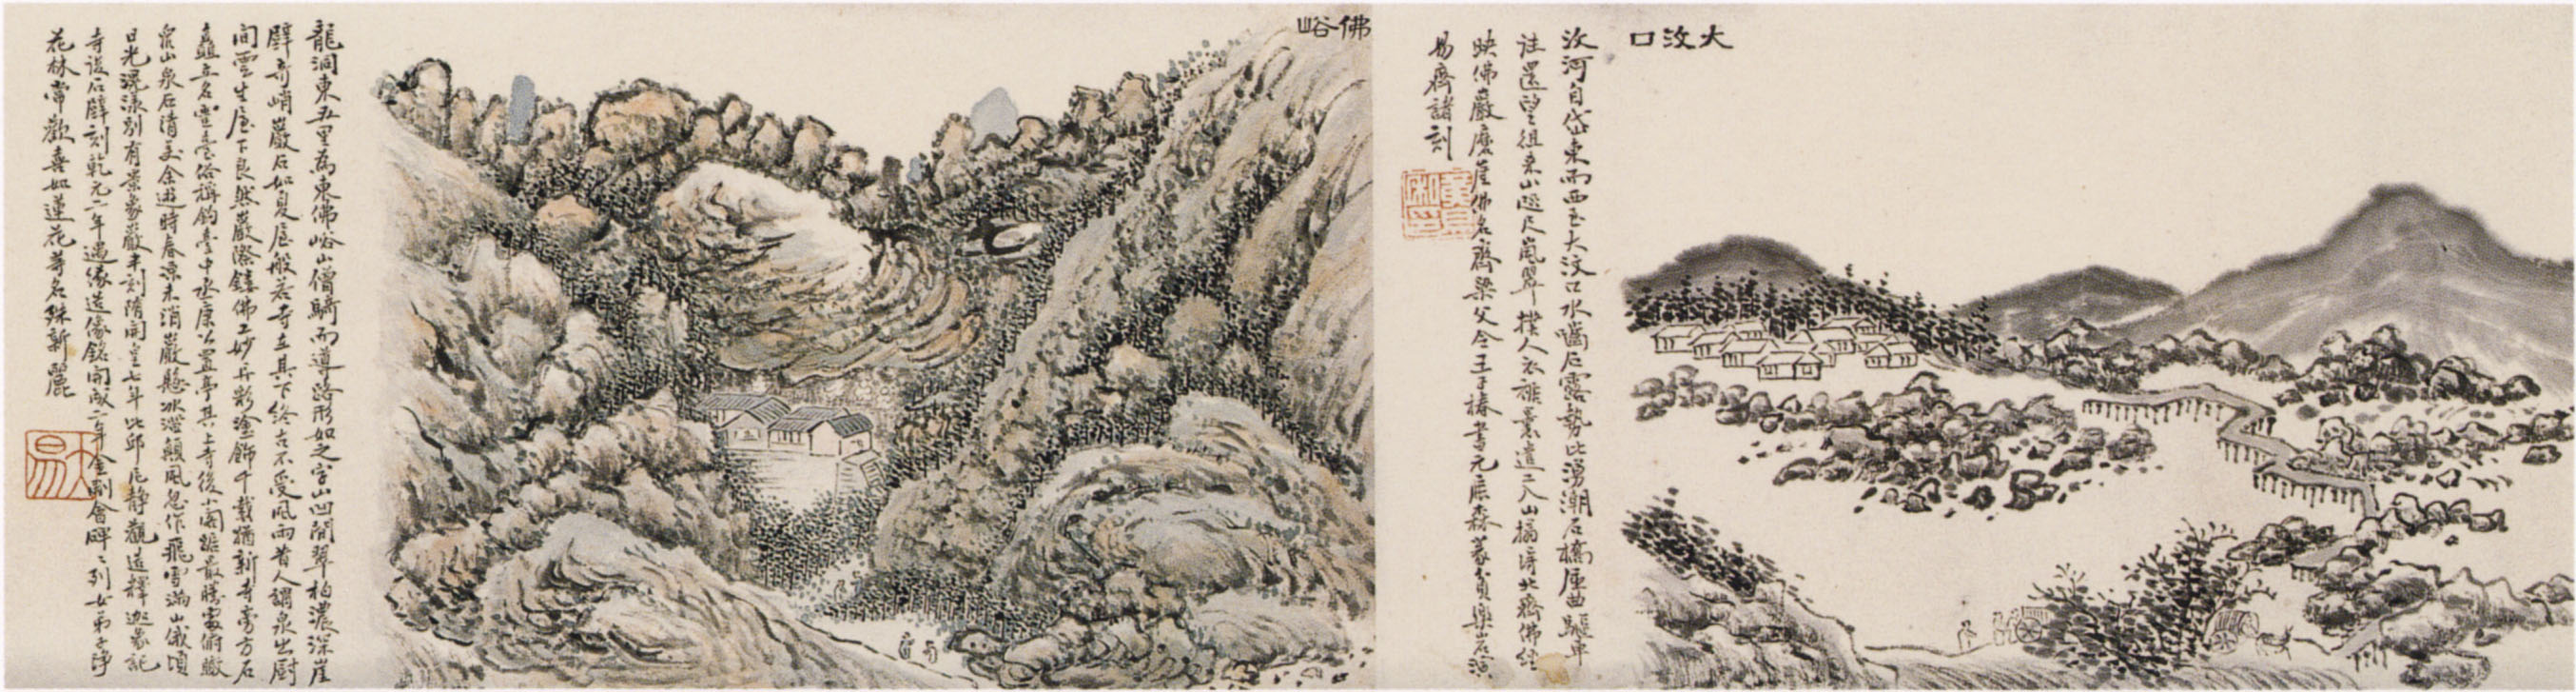 大汶口
汶河自岱東而西至大汶口水嚙石露勢比湧潮石橋厓曲驅車
往還望徂來山咫尺嵐翠撲人衣襟裏遣工入山搨得北齊佛經
映佛巖磨崖佛名齊梁父令王子椿書元
易齊諸刻
佛峪
龍洞東五里為東佛峪山僧騎而導路形如之字山凹間翠柏濃深崖
壁奇峭巖石如夏屋般若寺在其下終古不受風雨昔人謂泉出廚
間雲生屋下良然巖際鐫佛工妙丹彩塗飾千載猶新寺旁方石
矗立名靈臺俗稱釣臺中丞康公置亭其上寺後開元最勝處俯瞰
眾山泉石清美余遊時春凉未消巖懸冰澌顛風忽作飛雪滿山俄頃
日光滉漾別有景象巖半刻隋開皇七年比邱尼靜觀造釋迦象記
寺後石壁刻乾元二年遇緣造像銘開成二年金剛會碑碑列女弟子淨
花林常歡喜如蓮花等名殊新麗